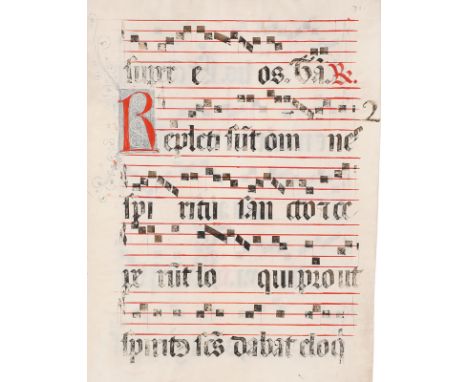 supr e os. Gła. R.
2
Repleti sūt om nes
spi ritu san cto et ce
pe rūt lo qui prout
spiritꝰ scs dabat eloq̄